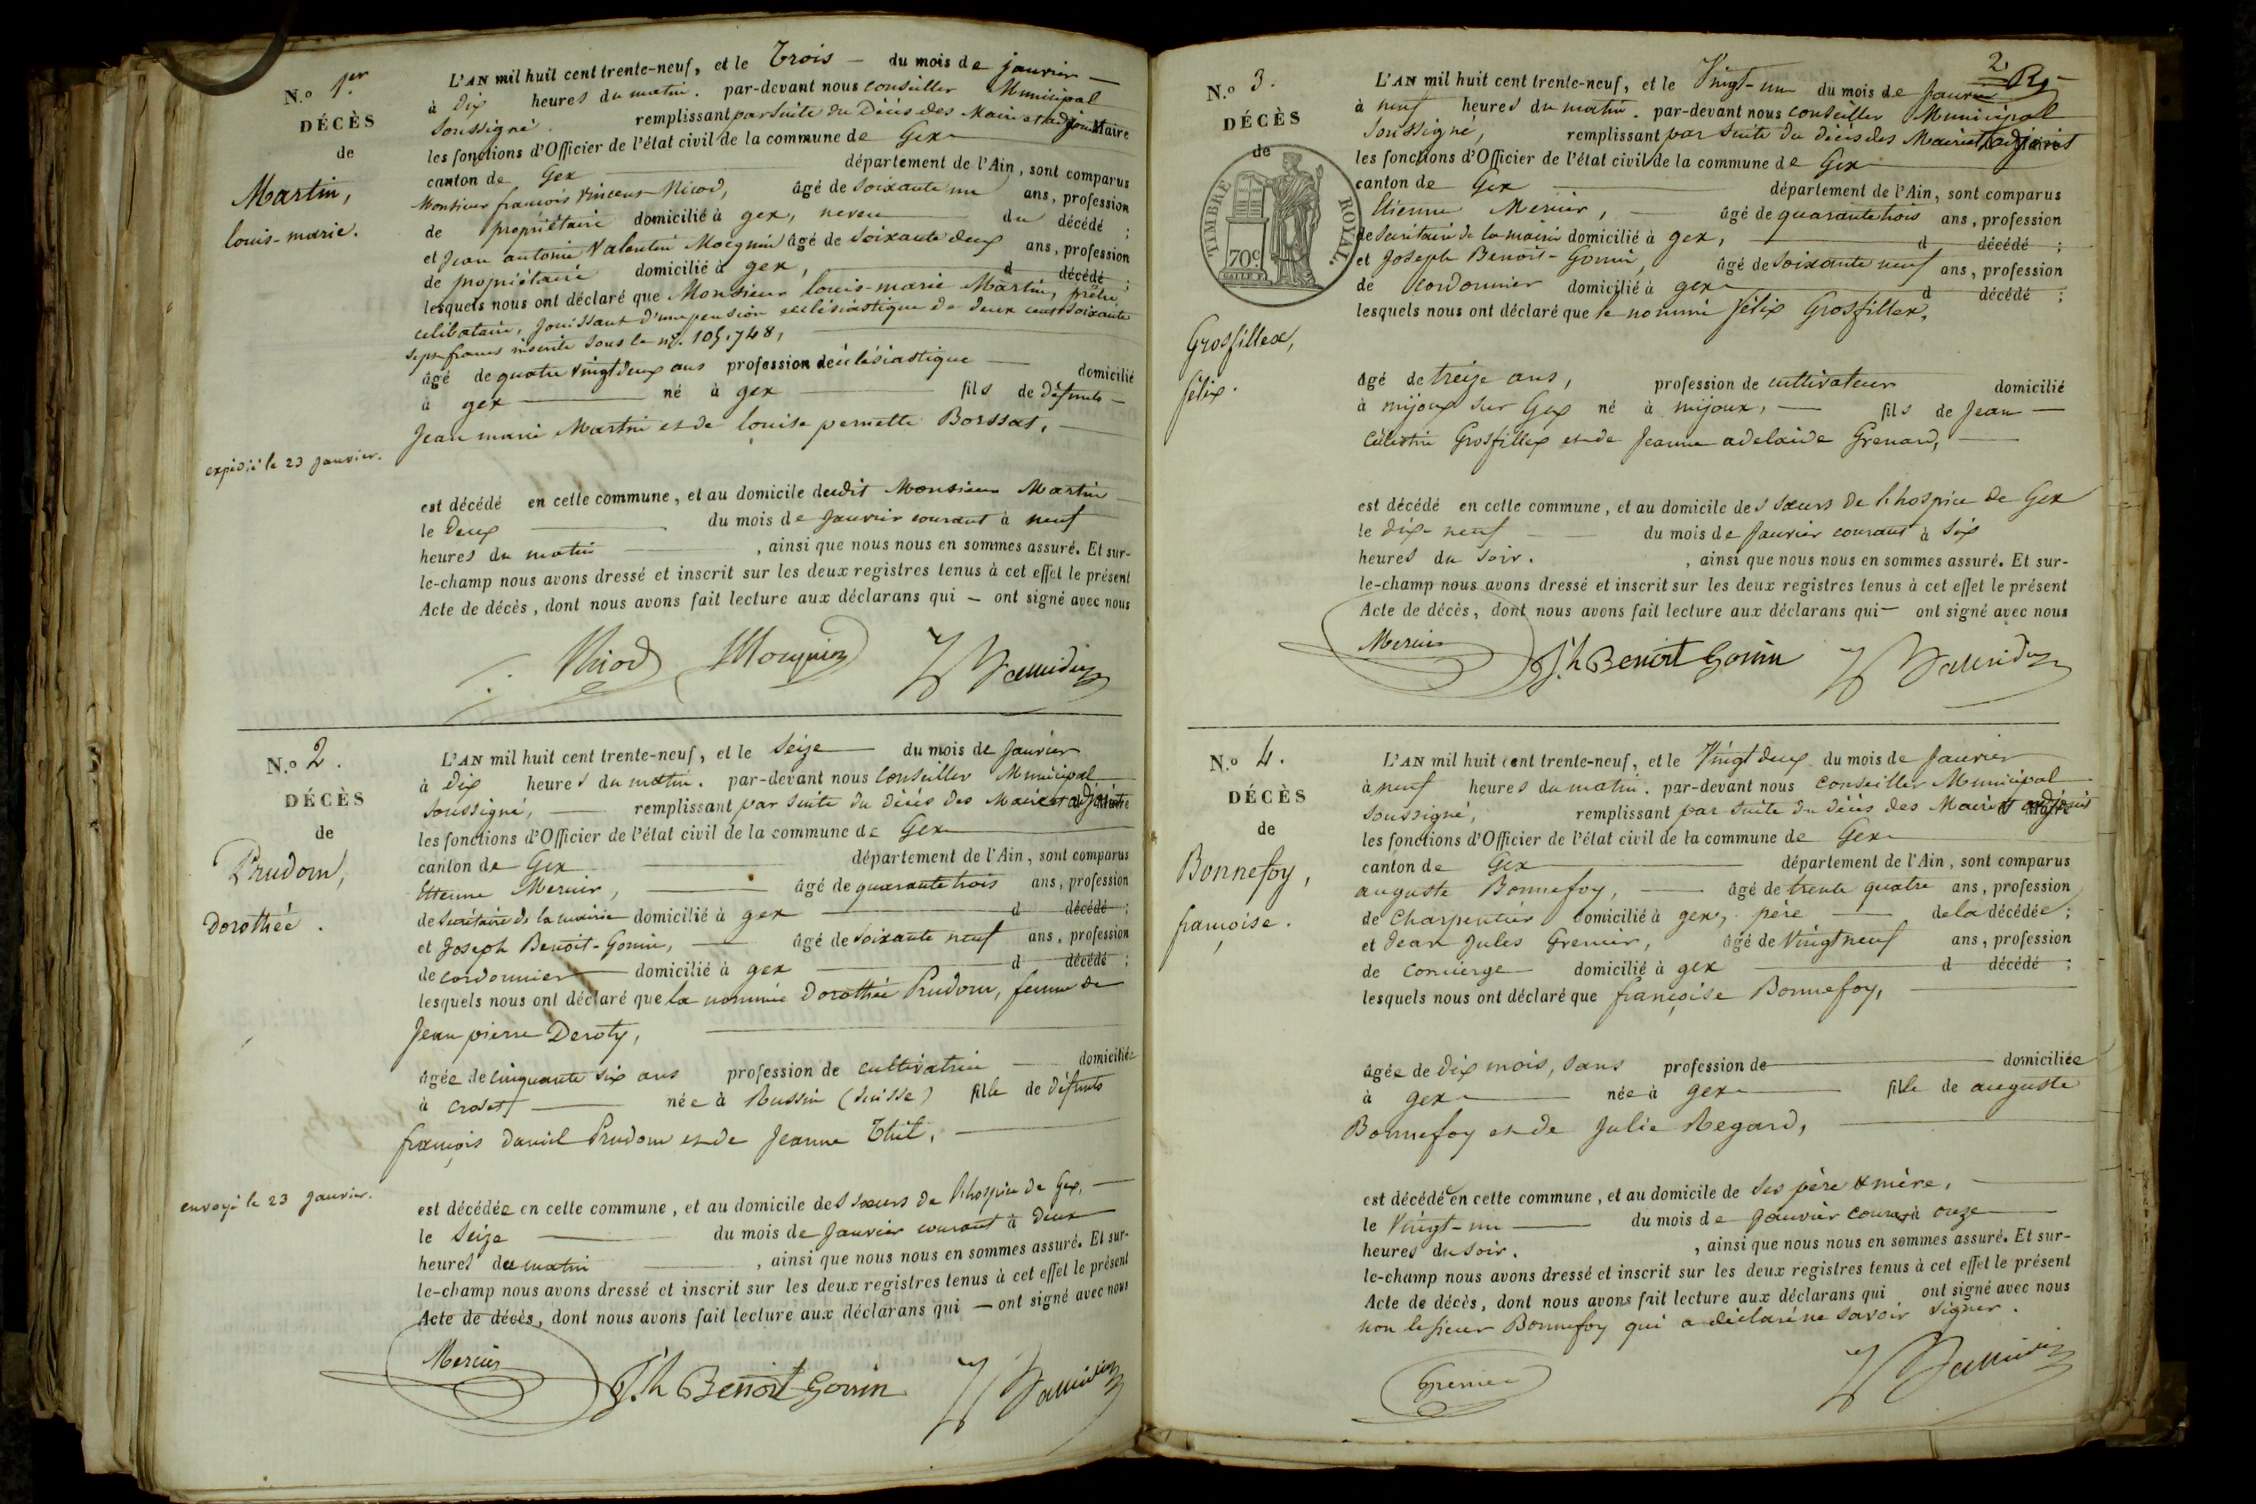 N.º 1.er
DÉCÈS
de
Martin,
louis-marie.
expédié le 23 janvier.
L'AN mil huit cent trente-neuf, et le Trois — du mois de janvier —
à Dix heures du matin. par-devant nous Conseiller Municipal
Soussigné. remplissant par suite du Décès des Maire et adjoint Maire
les fonctions d'Officier de l'état civil de la commune de Gex
canton de Gex département de l'Ain, sont comparus
Monsieur françois Vincent Nicod, âgé de Soixante un ans, profession
de propriétaire domicilié à gex, neveu du décédé ;
et Jean antoine Valentin Mocquin âgé de Soixante deux ans, profession
de propriétaire domicilié à gex, d décédé ;
lesquels nous ont déclaré que Monsieur louis-marie Martin, prêtre,
célibataire, jouissant d'une pension ecclésiastique de deux cent soixante
sept francs inscrite sous le n.º 105,748,
âgé de quatre vingt deux ans profession de éclésiastique — domicilié
à gex — né à gex — fils de défunts —
Jean marie Martin et de louise pernette Borssat, —
est décédé en cette commune, et au domicile dudit Monsieur Martin
le Deux — du mois de Janvier courant à neuf
heures du matin — , ainsi que nous nous en sommes assuré. Et sur-
le-champ nous avons dressé et inscrit sur les deux registres tenus à cet effet le présent
Acte de décès, dont nous avons fait lecture aux déclarans qui — ont signé avec nous
Nicod Mocquin
N.º 2.
DÉCÈS
de
Prudom,
Dorothée.
envoyé le 23 janvier.
L'AN mil huit cent trente-neuf, et le Seize — du mois de Janvier
à Dix heures du matin. par-devant nous Conseiller Municipal
Soussigné, — remplissant par suite du décès des Maire et adjoint Maire
les fonctions d'Officier de l'état civil de la commune de Gex
canton de Gex département de l'Ain, sont comparus
Etienne Mercier, — âgé de quarante trois ans, profession
de Secrétaire de la mairie domicilié à gex — d décédé ;
et Joseph Benoit-Gonin, — âgé de Soixante neuf ans, profession
de cordonnier — domicilié à gex — d décédé ;
lesquels nous ont déclaré que la nommée Dorothée Prudom, femme de
Jean pierre Deroty,
âgée de cinquante six ans profession de cultivatrice — domiciliée
à crozet — née à Russin (Suisse) fille de défunts
françois daniel Prudom et de Jeanne Thil, —
est décédée en cette commune, et au domicile des sœurs de l'hospice de Gex, —
le Seize — du mois de Janvier courant à deux
heures du matin — , ainsi que nous nous en sommes assuré. Et sur-
le-champ nous avons dressé et inscrit sur les deux registres tenus à cet effet le présent
Acte de décès, dont nous avons fait lecture aux déclarans qui — ont signé avec nous
Mercier J.h Benoit Gonin
2
N.º 3.
DÉCÈS
de
TIMBRE ROYAL.
70c
Grosfillex,
félix.
L'AN mil huit cent trente-neuf, et le Vingt-un du mois de Janvier
à neuf heures du matin. par-devant nous Conseiller Municipal
Soussigné, remplissant par suite du décès des Maire et adjoint
les fonctions d'Officier de l'état civil de la commune de Gex
canton de Gex département de l'Ain, sont comparus
Etienne Mercier, — âgé de quarante trois ans, profession
de Secrétaire de la mairie domicilié à gex, — d décédé ;
et Joseph Benoit-Gonin, âgé de Soixante neuf ans, profession
de cordonnier domicilié à gex — d décédé ;
lesquels nous ont déclaré que le nommé félix Grosfillex,
âgé de treize ans, profession de cultivateur domicilié
à mijoux sur Gex né à mijoux, — fils de Jean —
Célestin Grosfillex et de Jeanne adelaide Grenard, —
est décédé en cette commune, et au domicile des sœurs de l'hospice de Gex
le dix-neuf — du mois de Janvier courant à Six
heures du soir. , ainsi que nous nous en sommes assuré. Et sur-
le-champ nous avons dressé et inscrit sur les deux registres tenus à cet effet le présent
Acte de décès, dont nous avons fait lecture aux déclarans qui — ont signé avec nous
Mercier J.h Benoit Gonin
N.º 4.
DÉCÈS
de
Bonnefoy,
françoise.
L'AN mil huit cent trente-neuf, et le Vingt deux du mois de Janvier
à neuf heures du matin. par-devant nous Conseiller Municipal
Soussigné, remplissant par suite du décès des Maire et adjoint
les fonctions d'Officier de l'état civil de la commune de Gex
canton de Gex département de l'Ain, sont comparus
auguste Bonnefoy, — âgé de trente quatre ans, profession
de Charpentier domicilié à gex, père — de la décédée ;
et Jean Jules Grenier, âgé de Vingt neuf ans, profession
de concierge domicilié à gex — d décédé ;
lesquels nous ont déclaré que françoise Bonnefoy, —
âgée de dix mois, sans profession de — domiciliée
à gex — née à gex — fille de auguste
Bonnefoy et de Julie Regard, —
est décédée en cette commune, et au domicile de ses père & mère, —
le Vingt-un — du mois de Janvier courant à onze —
heures du soir. , ainsi que nous nous en sommes assuré. Et sur-
le-champ nous avons dressé et inscrit sur les deux registres tenus à cet effet le présent
Acte de décès, dont nous avons fait lecture aux déclarans qui ont signé avec nous
non le sieur Bonnefoy qui a déclaré ne savoir signer.
Grenier